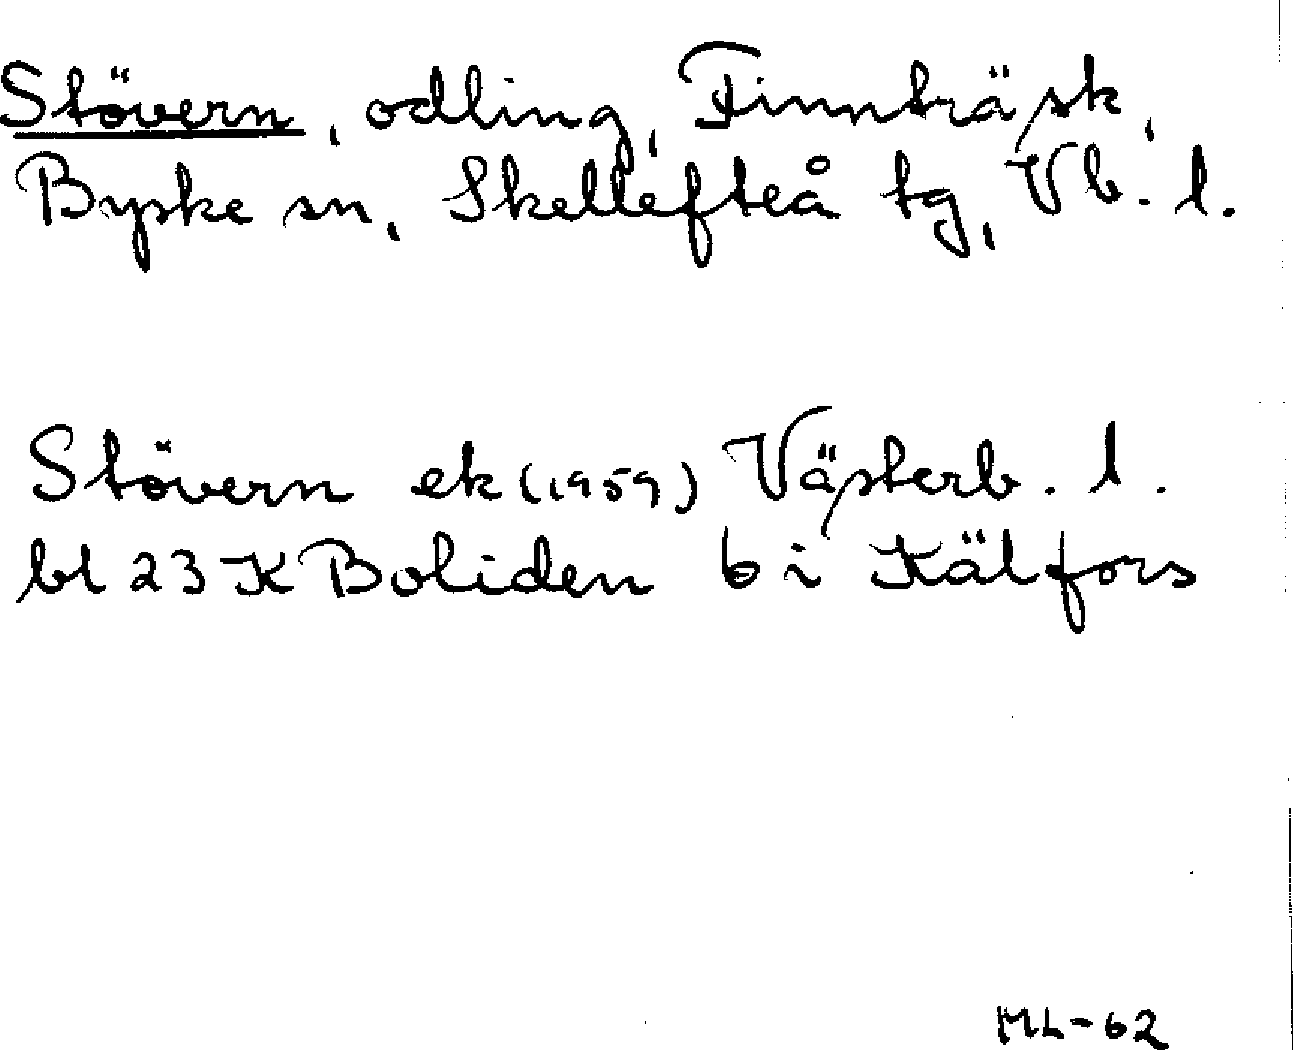 Stövern, odling, Finnträsk,
Byske sn, Skellefteå tg, Vb. l.
Stövern ek (1959) Västerb. l.
bl 23 K Boliden 6 i Kälfors
ML-62